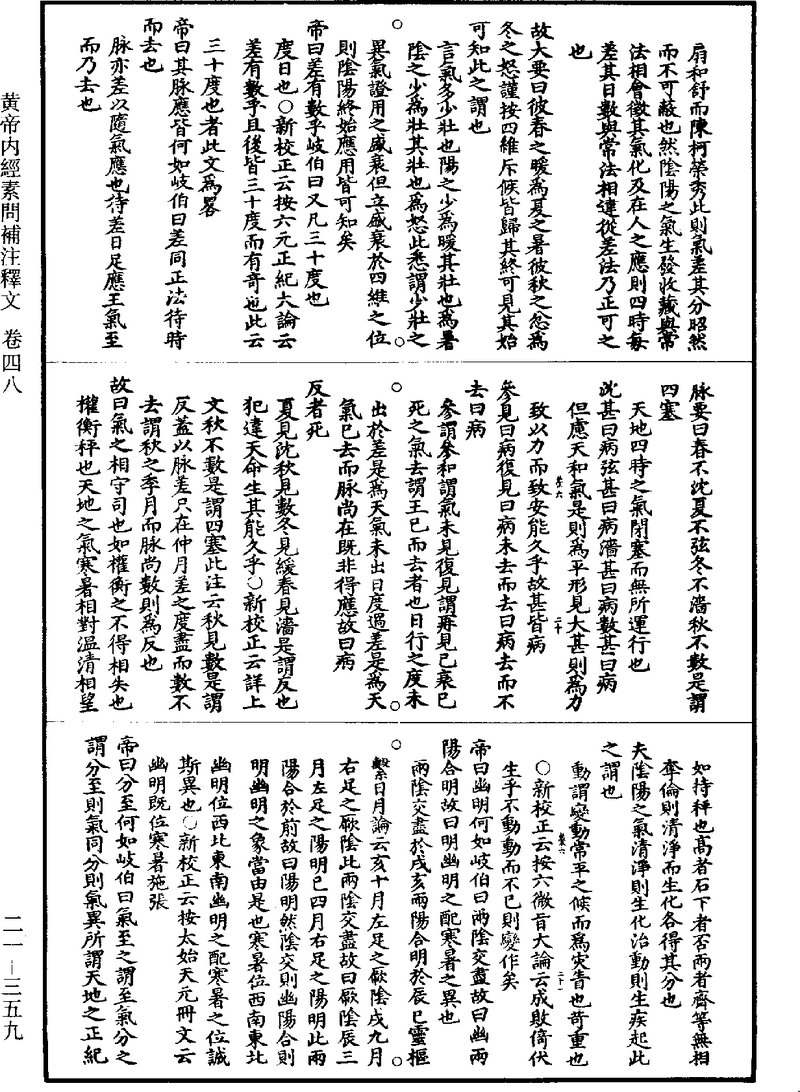 扇和舒而陳柯榮秀此則氣差其分昭然
而不可蔽也然陰陽之氣生發收藏與常
法相會徵其氣化及在人之應則四時每
差其日數與常法相違從差法乃正可之
也
故大要曰彼春之暖爲夏之暑彼秋之忿爲
冬之怒謹按四維斥候皆歸其終可見其始
可知此之謂也
言氣多少壯也陽之少爲暖其壯也爲暑
陰之少爲壯其壯也爲怒此悉謂少壯之
異氣證用之盛衰但立盛衰於四維之位
則陰陽終始應用皆可知矣
帝曰差有數乎岐伯曰又凡三十度也
度日也○新校正云按六元正紀大論云
差有數乎且後皆三十度而有奇也此云
三十度也者此文爲畧
帝曰其脉應皆何如岐伯曰差同正法待時
而去也
脉亦差以隨氣應也待差日足應王氣至
而乃去也
脉要曰春不沈夏不弦冬不濇秋不數是謂
四塞
天地四時之氣閉塞而無所運行也
沈甚曰病弦甚曰病濇甚曰病數甚曰病
但應天和氣是則爲平形見大甚則爲力
致以力而致安能久乎故甚皆病
參見曰病復見曰病未去而去曰病去而不
去曰病
參謂參和謂氣未見復見謂再見已衰已
死之氣去謂王已而去者也日行之度未
出於差是爲天氣未出日度過差是爲天
氣已去而脉尚在既非得應故曰病
反者死
夏見沈秋見數冬見緩春見濇是謂反也
犯違天命生其能久乎○新校正云詳上
文秋不數是謂四塞此注云秋見數是謂
反蓋以脉差只在仲月差之度盡而數不
去謂秋之季月而脉尚數則爲反也
故曰氣之相守司也如權衡之不得相失也
權衡秤也天地之氣寒暑相對温清相望
如持秤也高者石下者否兩者齊等無相
奪倫則清淨而生化各得其分也
夫陰陽之氣清淨則生化治動則生疾起此
之謂也
動謂變動常平之候而爲灾眚也苛重也
○新校正云按六微旨大論云成敗倚伏
生乎不動動而不已則變作矣
帝曰幽明何如岐伯曰兩陰交盡故曰幽兩
陽合明故曰明幽明之配寒暑之異也
兩陰交盡於戌亥兩陽合明於辰巳靈樞
繫日月論云亥十月左足之厥陰戌九月
右足之厥陰此兩陰交盡故曰厥陰辰三
月左足之陽明巳四月右足之陽明此兩
陽合於前故曰陽明然陰交則幽陽合則
明幽明之象當由是也寒暑位西南東北
幽明位西北東南幽明之配寒暑之位誠
斯異也○新校正云按太始天元冊文云
幽明既位寒暑施張
帝曰分至何如岐伯曰氣至之謂至氣分之
謂分至則氣同分則氣異所謂天地之正紀
黄帝内經素問補注釋文　卷四八
二一－三五九